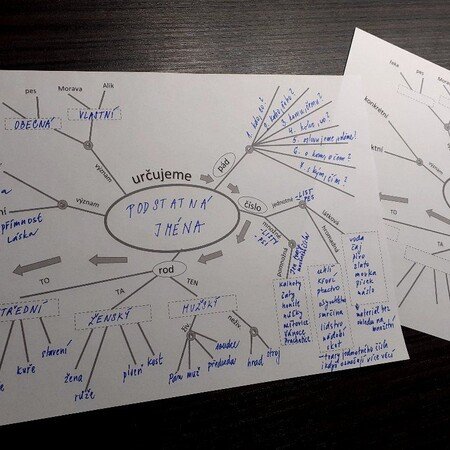 Alík
Morava
pes
VLASTNÍ
OBECNÁ
význam
určujeme
pád
1. kdo, co?
2. koho, čeho?
3. komu, čemu?
4. koho, co?
5. oslovujeme, voláme
6. o kom, o čem?
7. s kým, čím?
PODSTATNÁ
JMÉNA
význam
přímnost
láska
číslo
jednotné
-LIST
PES
-LISTY
-PSI
pomnožná
hromadná
látková
kalhoty
šaty
housle
nůžky
Vánoce
Prachatice
uhlí
křoví
ptactvo
smrčina
lidstvo
nádobí
skot
voda
čaj
pivo
zlato
mouka
písek
máslo
materiál bez
ohledu na
množství
tvary jednotného čísla
i když označují více věcí
rod
TO
TA
TEN
STŘEDNÍ
ŽENSKÝ
MUŽSKÝ
živ.
neživ.
kuře
stavení
žena
růže
píseň
kost
pán
muž
předseda
soudce
hrad
stroj
řeka
pes
konkrétní
význam